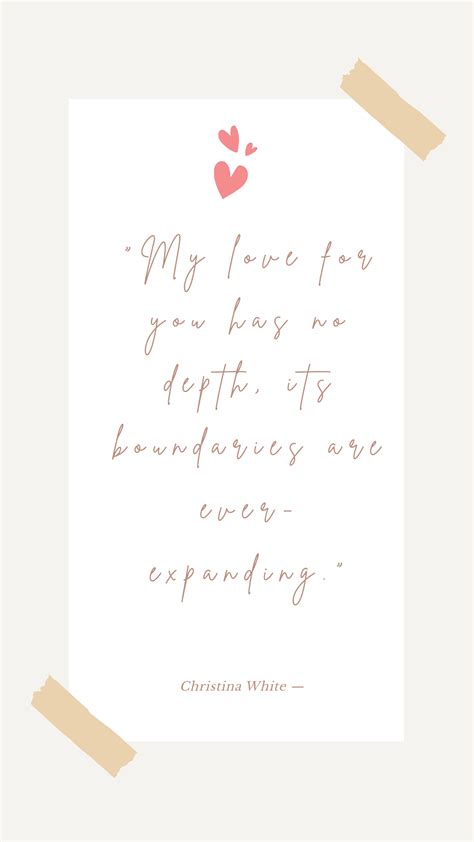 "My love for
you has no
depth, its
boundaries are
ever-
expanding."
Christina White —